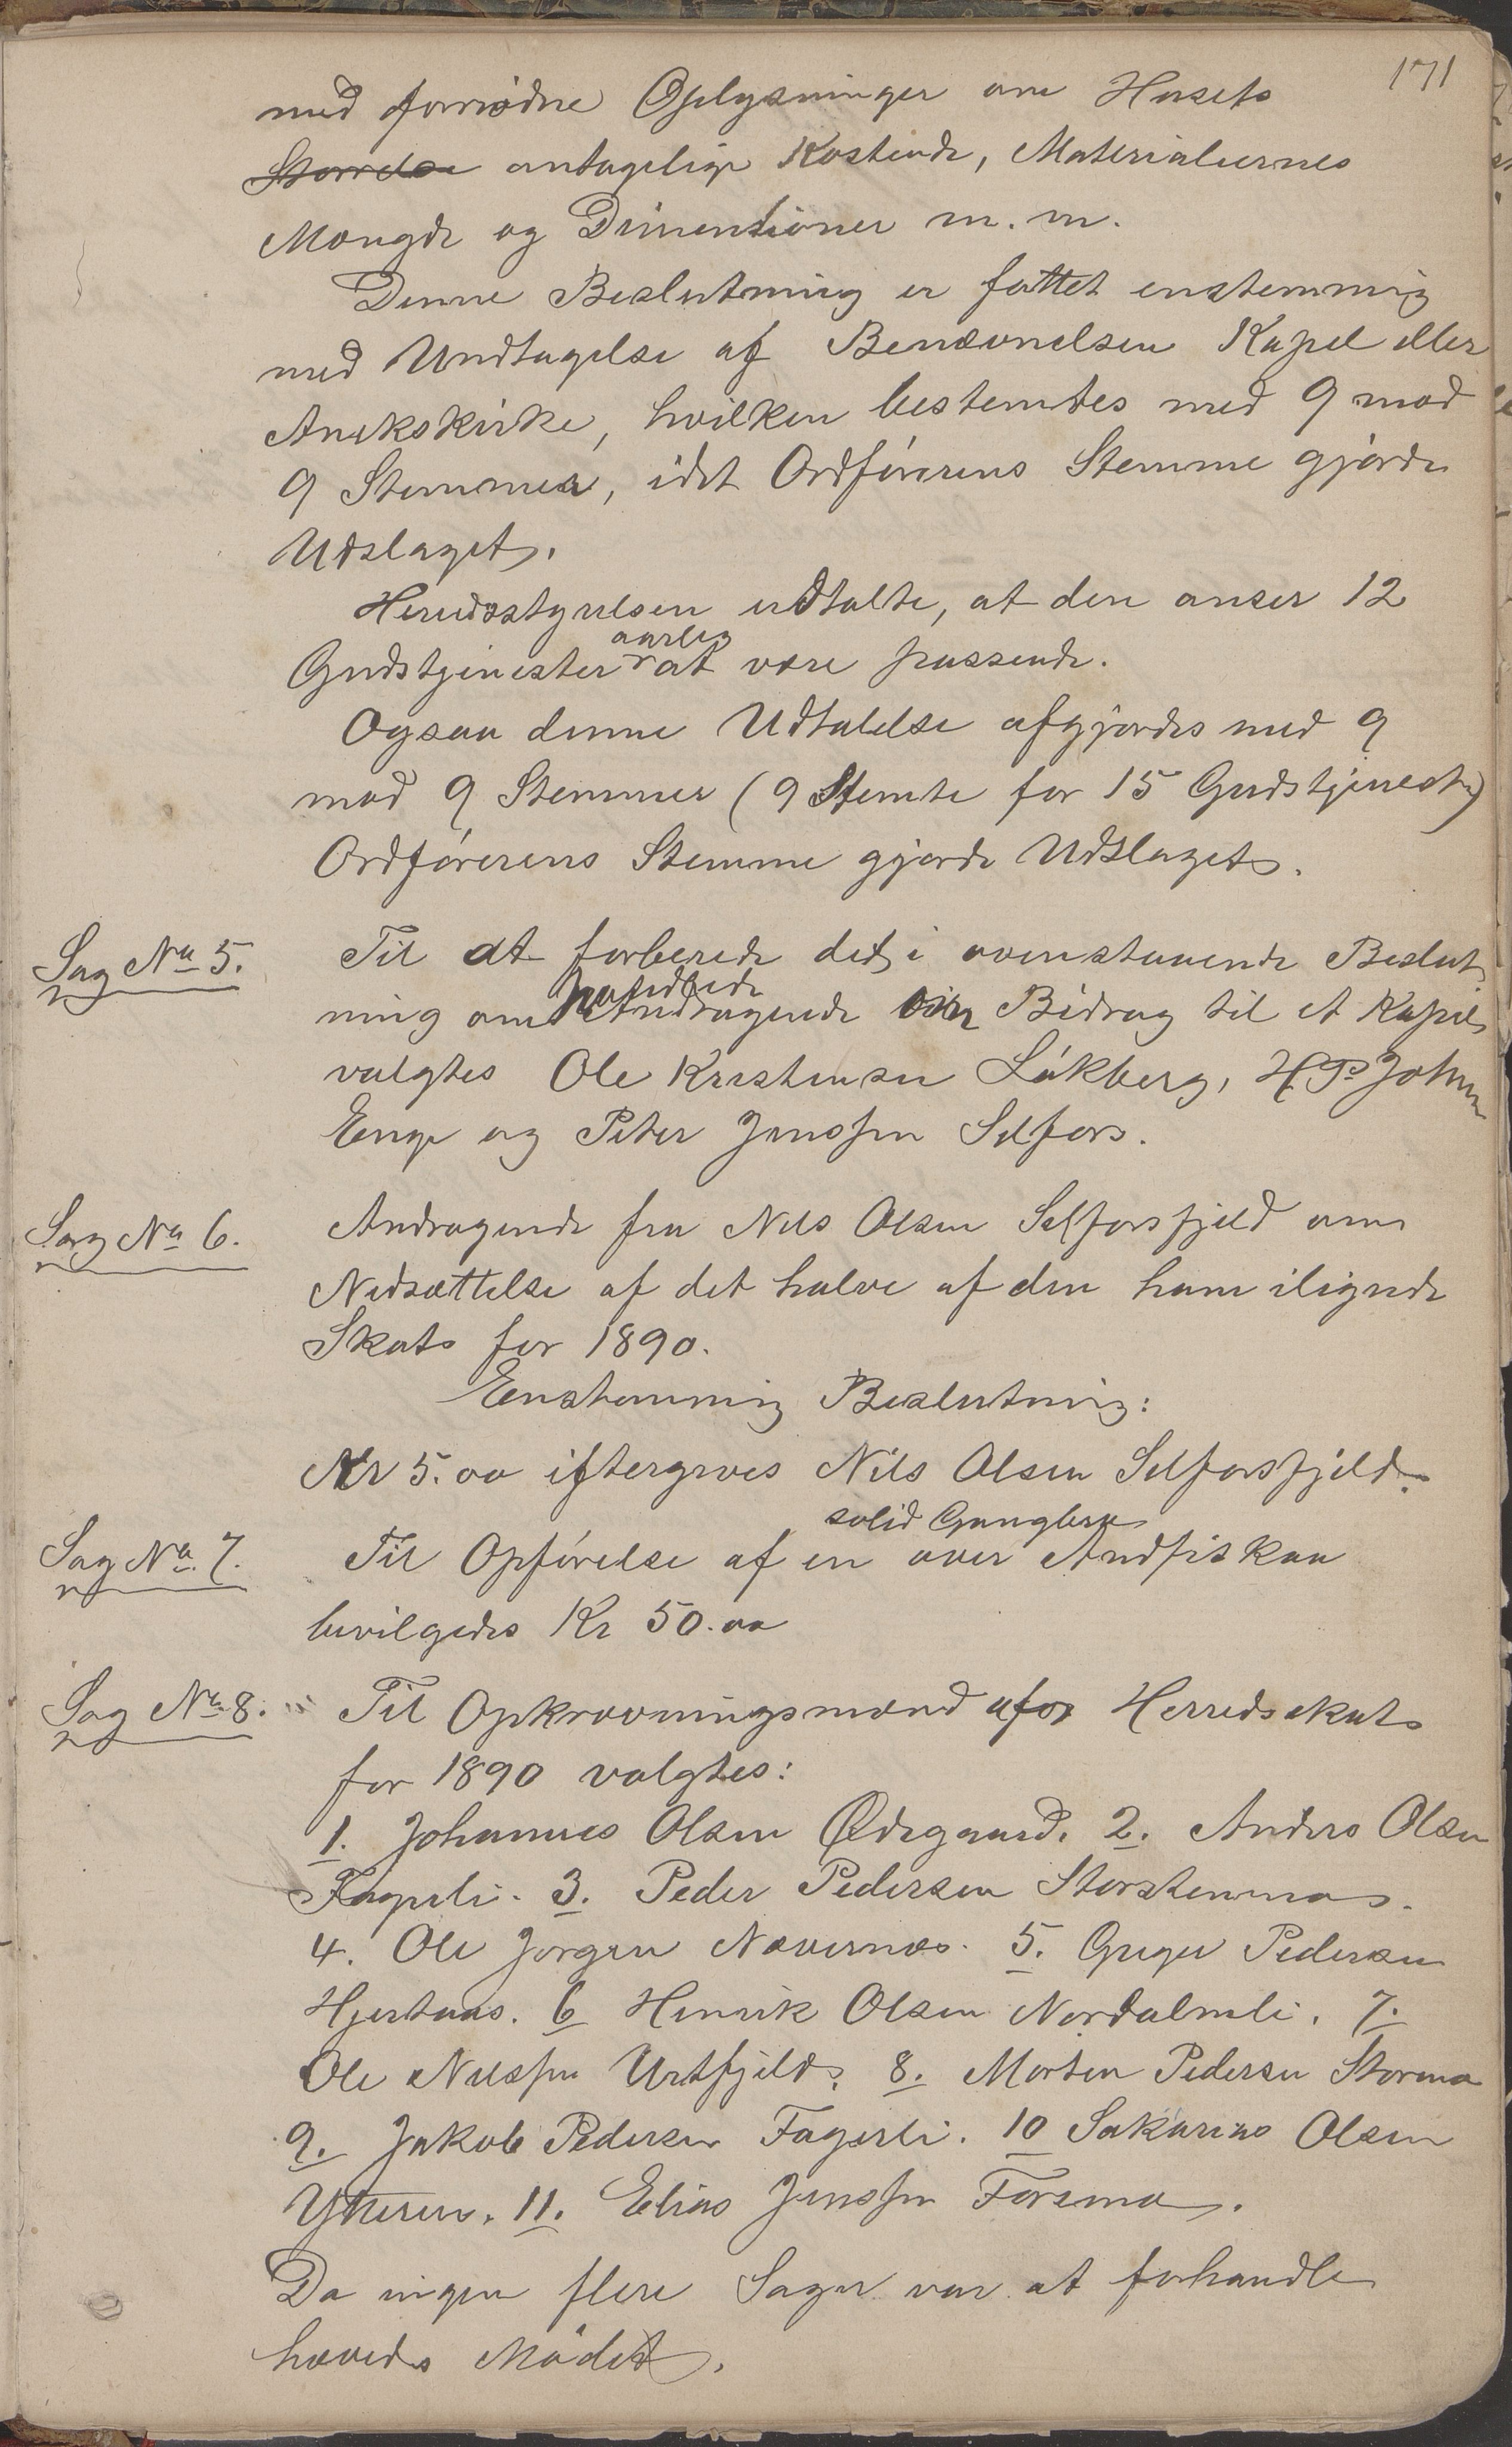 171
med fornødne Oplysninger om Husets
Størrelse antagelige Kostende, Materialiernes
Mængde og Dimentioner m. m.
Denne Beslutning er fattet enstemmig
med Undtagelse af Benævnelsen Kapel eller
Anekskirke, hvilken bestemtes med 9 mod
9 Stemmer, idet Ordførerens Stemme gjorde
Udslaget.
Herredsstyrelsen udtalte, at den anser 12
aarlig
Gudstjenester at være passende.
Ogsaa denne Udtalelse afgjordes med 9
mod 9 Stemmer (9 Stemte for 15 Gudstjenester)
Ordførerens Stemme gjorde Udslaget.
Sag No 5.
Til at forberede det i ovenstaaende Beslut
ning om Andragende Bidrag til et Kapel
valgtes Ole Kristensen Løkberg, H. P. Johan
Enge og Peter Jensen Selfors.
Sag No 6.
Andragende fra Nils Olsen Selforsfjeld om
Nedsættelse af det halve af den ham ilignede
Skat for 1890.
Eenstemmig Beslutning:
Kr 5.00 eftergives Nils Olsen Selforsfjeld.
Sag No. 7.
solid Gangbro
Til Opførelse af en over Andfiskaa
bevilgedes Kr 50.00
Sag No 8.
Til Opkrævningsmænd for Herredsskat
for 1890 valgtes:
1. Johannes Olsen Ødegaard. 2. Anders Olsen
Fagerli. 3. Peder Pedersen Storstennæs.
4. Ole Jørgen Nævernæs. 5. Greger Pedersen
Hjertaas. 6 Henrik Olsen Nordalmli. 7.
Ole Nilssen Urtfjeld. 8. Morten Pedersen Storma
9. Jakob Pedersen Fagerli. 10 Sakarias Olsen
Ytteren. 11. Elias Jenssen Forsmo.
Da ingen flere Sager var at forhandle
hævedes Mødet.